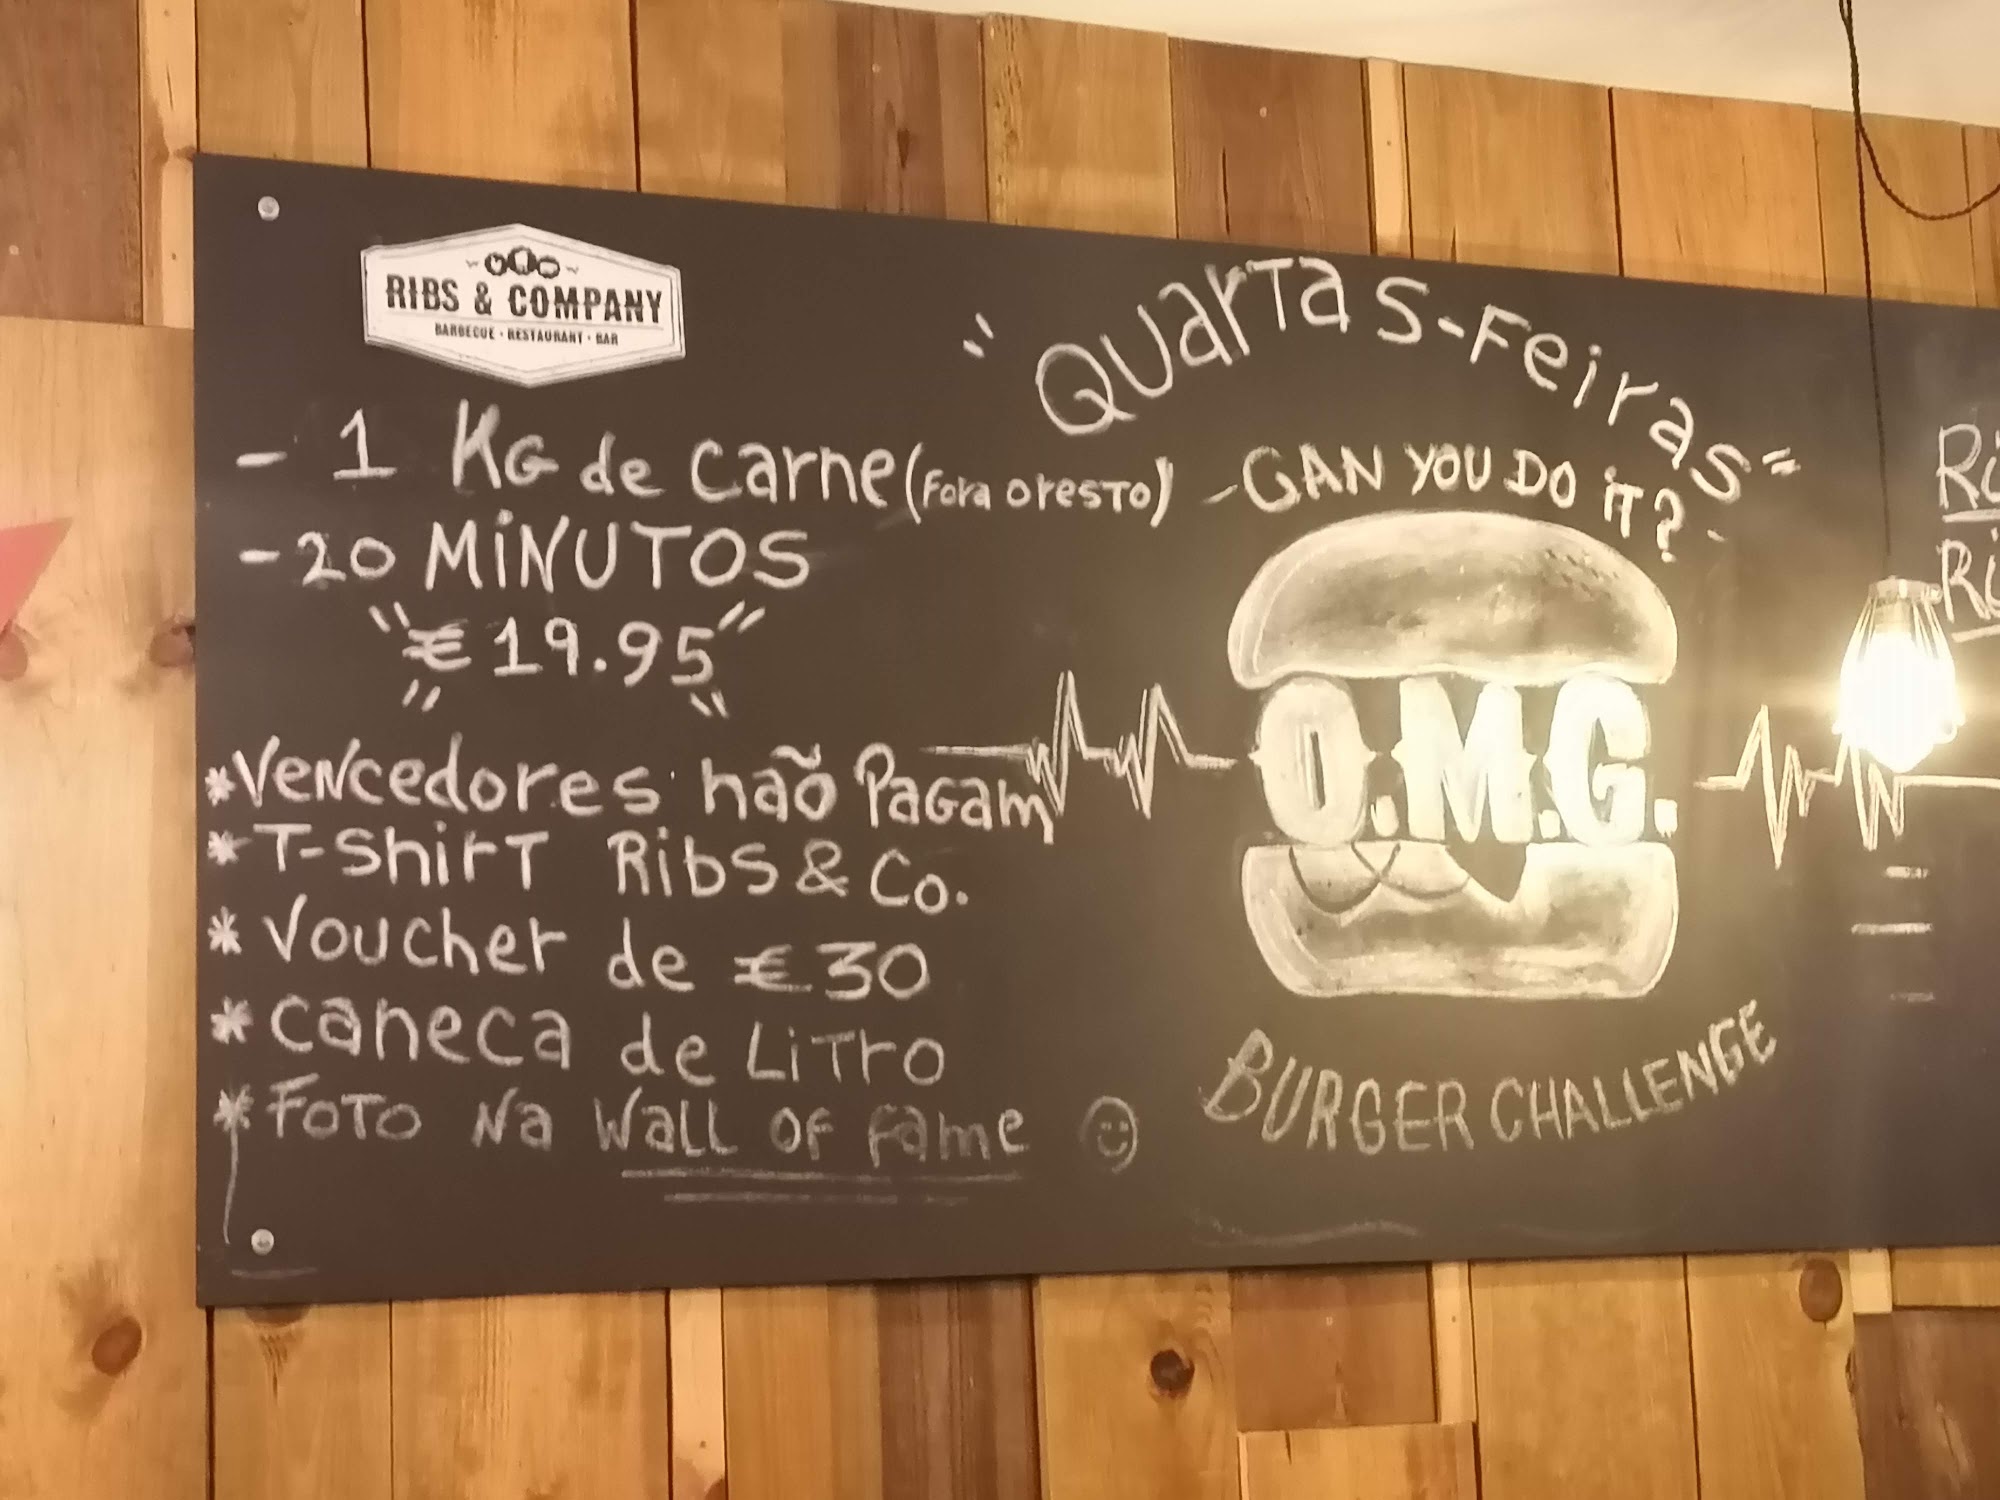 RIBS & COMPANY
BARBECUE · RESTAURANT · BAR
- 1 KG de carne (Fora o resto)
- 20 MINUTOS
"€ 19.95"
*Vencedores não Pagam
*T-Shirt Ribs & Co.
*Voucher de €30
*Caneca de Litro
*Foto na Wall of fame
"Quartas-Feiras"
-CAN YOU DO iT?-
O.M.G.
BURGER CHALLENGE